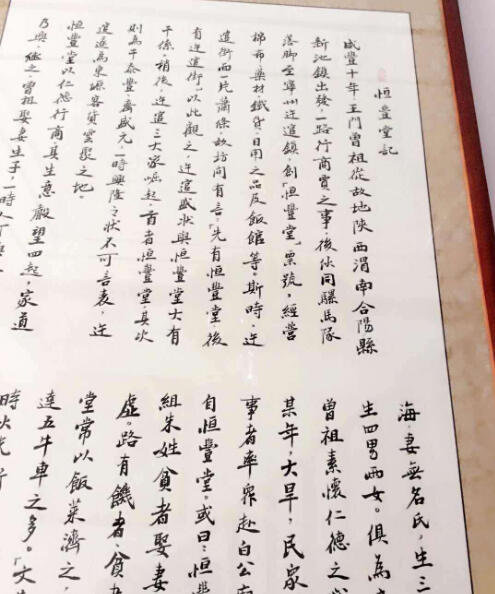 恒豐堂記
咸豐十年王門曾祖從故地陝西渭南合陽縣
新池鎮出發，一路行商賈之事，後伙同騾馬隊
落腳至寧州迮鎮，創「恒豐堂」票號，經營
棉布藥材、鐵貨、日用之品及飯館等。斯時，迮
街面一片蕭條，故坊間有言「先有恒豐堂，後
有迮街」以此觀之，迮盛狀與恒豐堂大有
干係。稍後，迮三大家崛起，首者恒豐堂，其次
則為千泰豐、齋盛元，一時興隆之狀不可言表，迮
為東塬客貨雲聚之地。
恒豐堂以仁德行商，其生意殷望四起，家道
乃興。繼之，曾祖娶妻生子，一時人丁
海，妻無名氏，生三
生四男兩女。俱為
曾祖素懷仁德之
某年，大旱，民家
事者率眾赴白公
自恒豐堂，或曰：恒豐
組朱姓貧者娶妻
虛。路有饑者、貧
堂常以飯菜濟之，
達五牛車之多。「
時